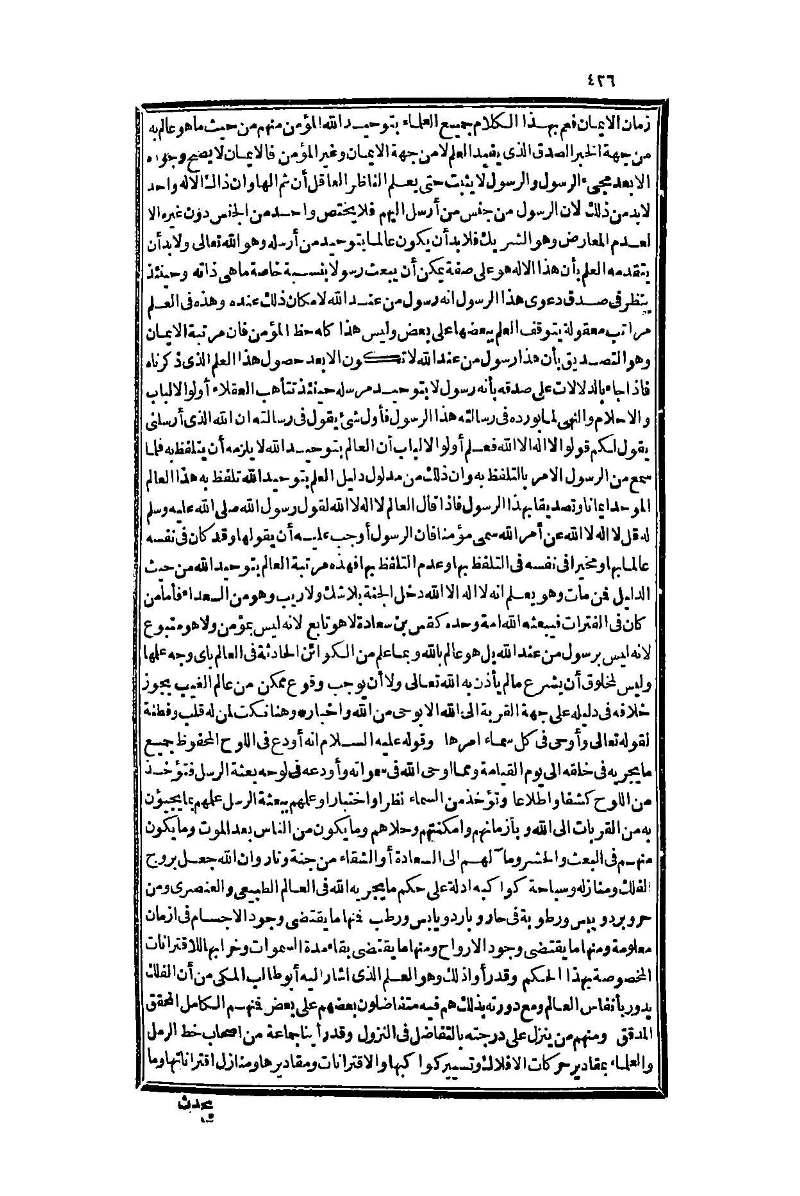 ٤٢٦
زمان الايمان فعم بهذا الكلام جميع العلماء بتوحيد الله المؤمن منهم من حيث ما هو عالم به
من جهة الخبر الصدق الذى يفيد العلم لا من جهة الايمان وغير المؤمن فالايمان لا يصح وجوده
الا بعد مجىء الرسول والرسول لا يثبت حتى يعلم الناظر العاقل أن ثم الها وان ذلك الاله واحد
لا بد من ذلك لان الرسول من جنس من أرسل اليهم فلا يختص واحد من الجنس دون غيره الا
لعدم المعارض وهو الشريك فلا بد أن يكون عالما بتوحيد من أرسله وهو الله تعالى ولا بد أن
يتقدمه العلم بأن هذا الاله هو على صفة يمكن أن يبعث رسولا بنسبة خاصة ما هى ذاته وحينئذ
ينظر فى صدق دعوى هذا الرسول انه رسول من عند الله لامكان ذلك عنده وهذه فى العلم
مراتب معقولة يتوقف العلم ببعضها على بعض وليس هذا كله حظ المؤمن فان مرتبة الايمان
وهو التصديق بأن هذا رسول من عند الله لا تكون الا بعد حصول هذا العلم الذى ذكرناه
فاذا جاء بالدلالات على صدقه بأنه رسول لا بتوحيد مرسله حينئذ تتأهب العقلاء أولو الالباب
والاحلام والنهى لما يورده فى رسالته هذا الرسول فأول شئ يقول فى رسالته ان الله الذى أرسلنى
يقول لكم قولوا لا اله الا الله فعلم أولو الالباب أن العالم بتوحيد الله لا يلزمه أن يتلفظ به فلما
سمع من الرسول الامر بالتلفظ به وان ذلك من مدلول دليل العلم بتوحيد الله تلفظ به هذا العالم
الموحد ايمانا وتصديقا بهذا الرسول فاذا قال العالم لا اله الا الله لقول رسول الله صلى الله عليه وسلم
له قل لا اله الا الله عن أمر الله سمى مؤمنا فان الرسول أوجب عليه أن يقولها وقد كان فى نفسه
عالما بها ومخيرا فى نفسه فى التلفظ بها وعدم التلفظ بها فهذه مرتبة العالم بتوحيد الله من حيث
الدليل فمن مات وهو يعلم انه لا اله الا الله دخل الجنة بلا شك ولا ريب وهو من السعداء فأما من
كان فى الفترات فيبعثه الله امة وحده كقس بن ساعدة لا هو تابع لانه ليس بمؤمن ولا هو متبوع
لانه ليس برسول من عند الله بل هو عالم بالله وبما علم من الكوائن الحادثة فى العالم بأى وجه علمها
وليس لمخلوق أن يشرع ما لم يأذن به الله تعالى ولا أن يوجب وقوع ممكن من عالم الغيب يجوز
خلافه فى دليله على جهة القربة الى الله الا بوحى من الله واخباره وهنا نكت لمن له قلب وفطنة
لقوله تعالى وأوحى فى كل سماء امرها وقوله عليه السلام انه أودع فى اللوح المحفوظ جميع
ما يجريه فى خلقه الى يوم القيامة ومما اوحى الله فى سمواته وأودعه فى لوحه بعثة الرسل فتؤخذ
من اللوح كشفا واطلاعا وتؤخذ من السماء نظرا واختبارا وعلمهم ببعثة الرسل علمهم بما يجيؤن
به من القربات الى الله وبأزمانهم وامكنتهم وحلاهم وما يكون من الناس بعد الموت وما يكون
منهم فى البعث والحشر وما آلهم الى السعادة أو الشقاء من جنة ونار وان الله جعل بروج
الفلك ومنازله وسباحة كواكبه ادلة على حكم ما يجريه الله فى العالم الطبيعى والعنصرى ومن
حر وبرد ويبس ورطوبة فى حار وبارد ويابس ورطب فمنها ما يقتضى وجود الاجسام فى ازمان
معلومة ومنها ما يقتضى وجود الارواح ومنها ما يقتضى بقاء مدة السموات وخرابها للاقترانات
المخصوصة بهذا الحكم وقد رأوا ذلك وهو العلم الذى اشار اليه أبو طالب المكى من أن الفلك
يدور بأنفاس العالم ومع دورته بذلك هم فيه متفاضلون بعضهم على بعض فمنهم الكامل المحقق
المدقق ومنهم من ينزل على درجته بالتفاضل فى النزول وقد رأينا جماعة من اصحاب خط الرمل
والعلماء بمقادير حركات الافلاك وتسيير كواكبها والاقترانات ومقاديرها ومنازل اقتراناتها وما
يحدث